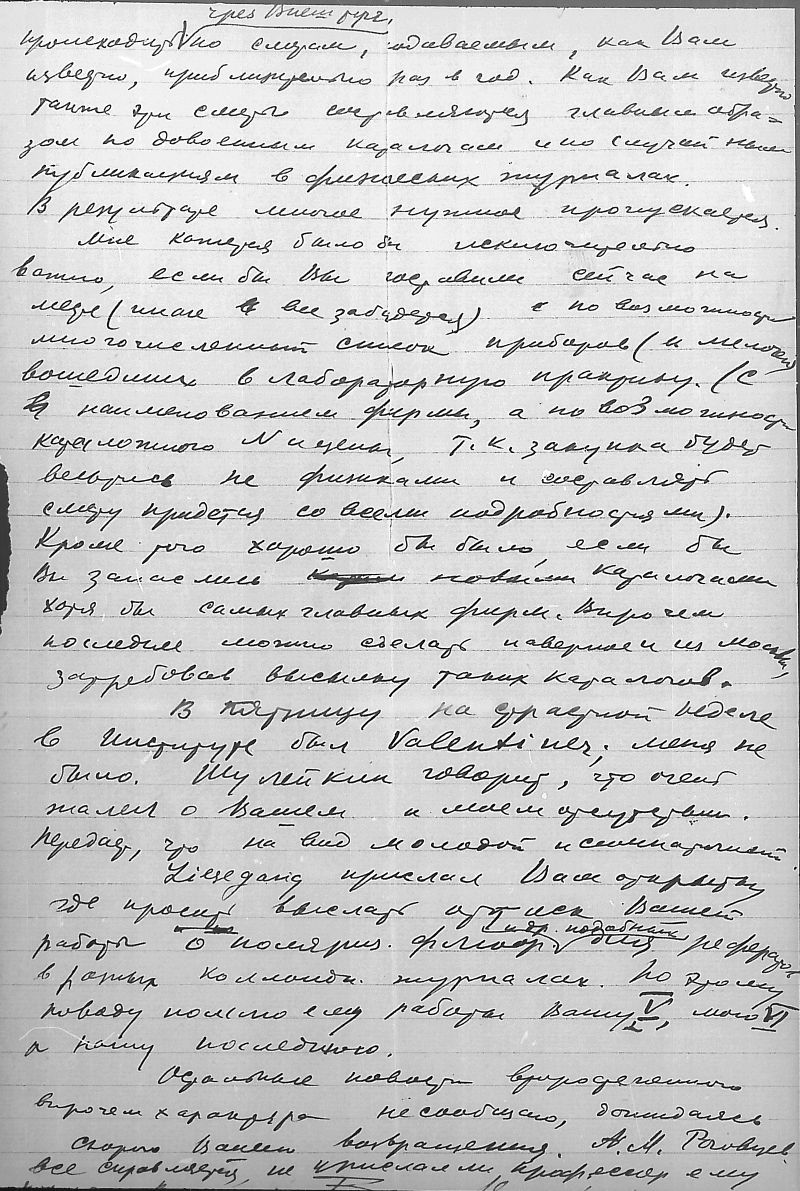 чрез Внешторг.
происходить по сметам, подаваемым, как Вам
известно, приблизительно раз в год. Как Вам известно
также эти сметы составляются главным обра-
зом по довоенным каталогам и по случайным
публикациям в физических журналах.
В результате многое нужное пропускается.
Мне кажется было бы исключительно
важно, если бы Вы составили сейчас на
месте (иначе все забудется) по возможности
многочисленный список приборов (и мелочей)
вошедших в лабораторную практику. (С
наименованием фирмы, а по возможности
каталожного N и цены, т.к. закупка будет
вестись не физиками и составлять
смету придется со всеми подробностями).
Кроме того хорошо бы было, если бы
Вы запаслись новыми каталогами
хотя бы самых главных фирм. Впрочем
последнее можно сделать наверное и из Москвы,
затребовав высылку таких каталогов.
В пятницу на страстной неделе
в Институте был Valentiner, меня не
было. Шулейкин говорит, что очень
жалел о Вашем и моем отсутствии.
Передает, что на вид молодой и симпатичный.
Liesegang прислал Вам открытку
где просит выслать оттиск Вашей
работы о поляриз. флюор. и др. подобных для рефератов
в разных коллоидн. журналах. По этому
поводу послано ему работы Вашу V, мою VI
и нашу последнюю.
Остальные новости
впрочем характера не сообщаю, дожидаясь
скорого Вашего возвращения. А.М. Роговцев
все справляется, не прислали профессор ему